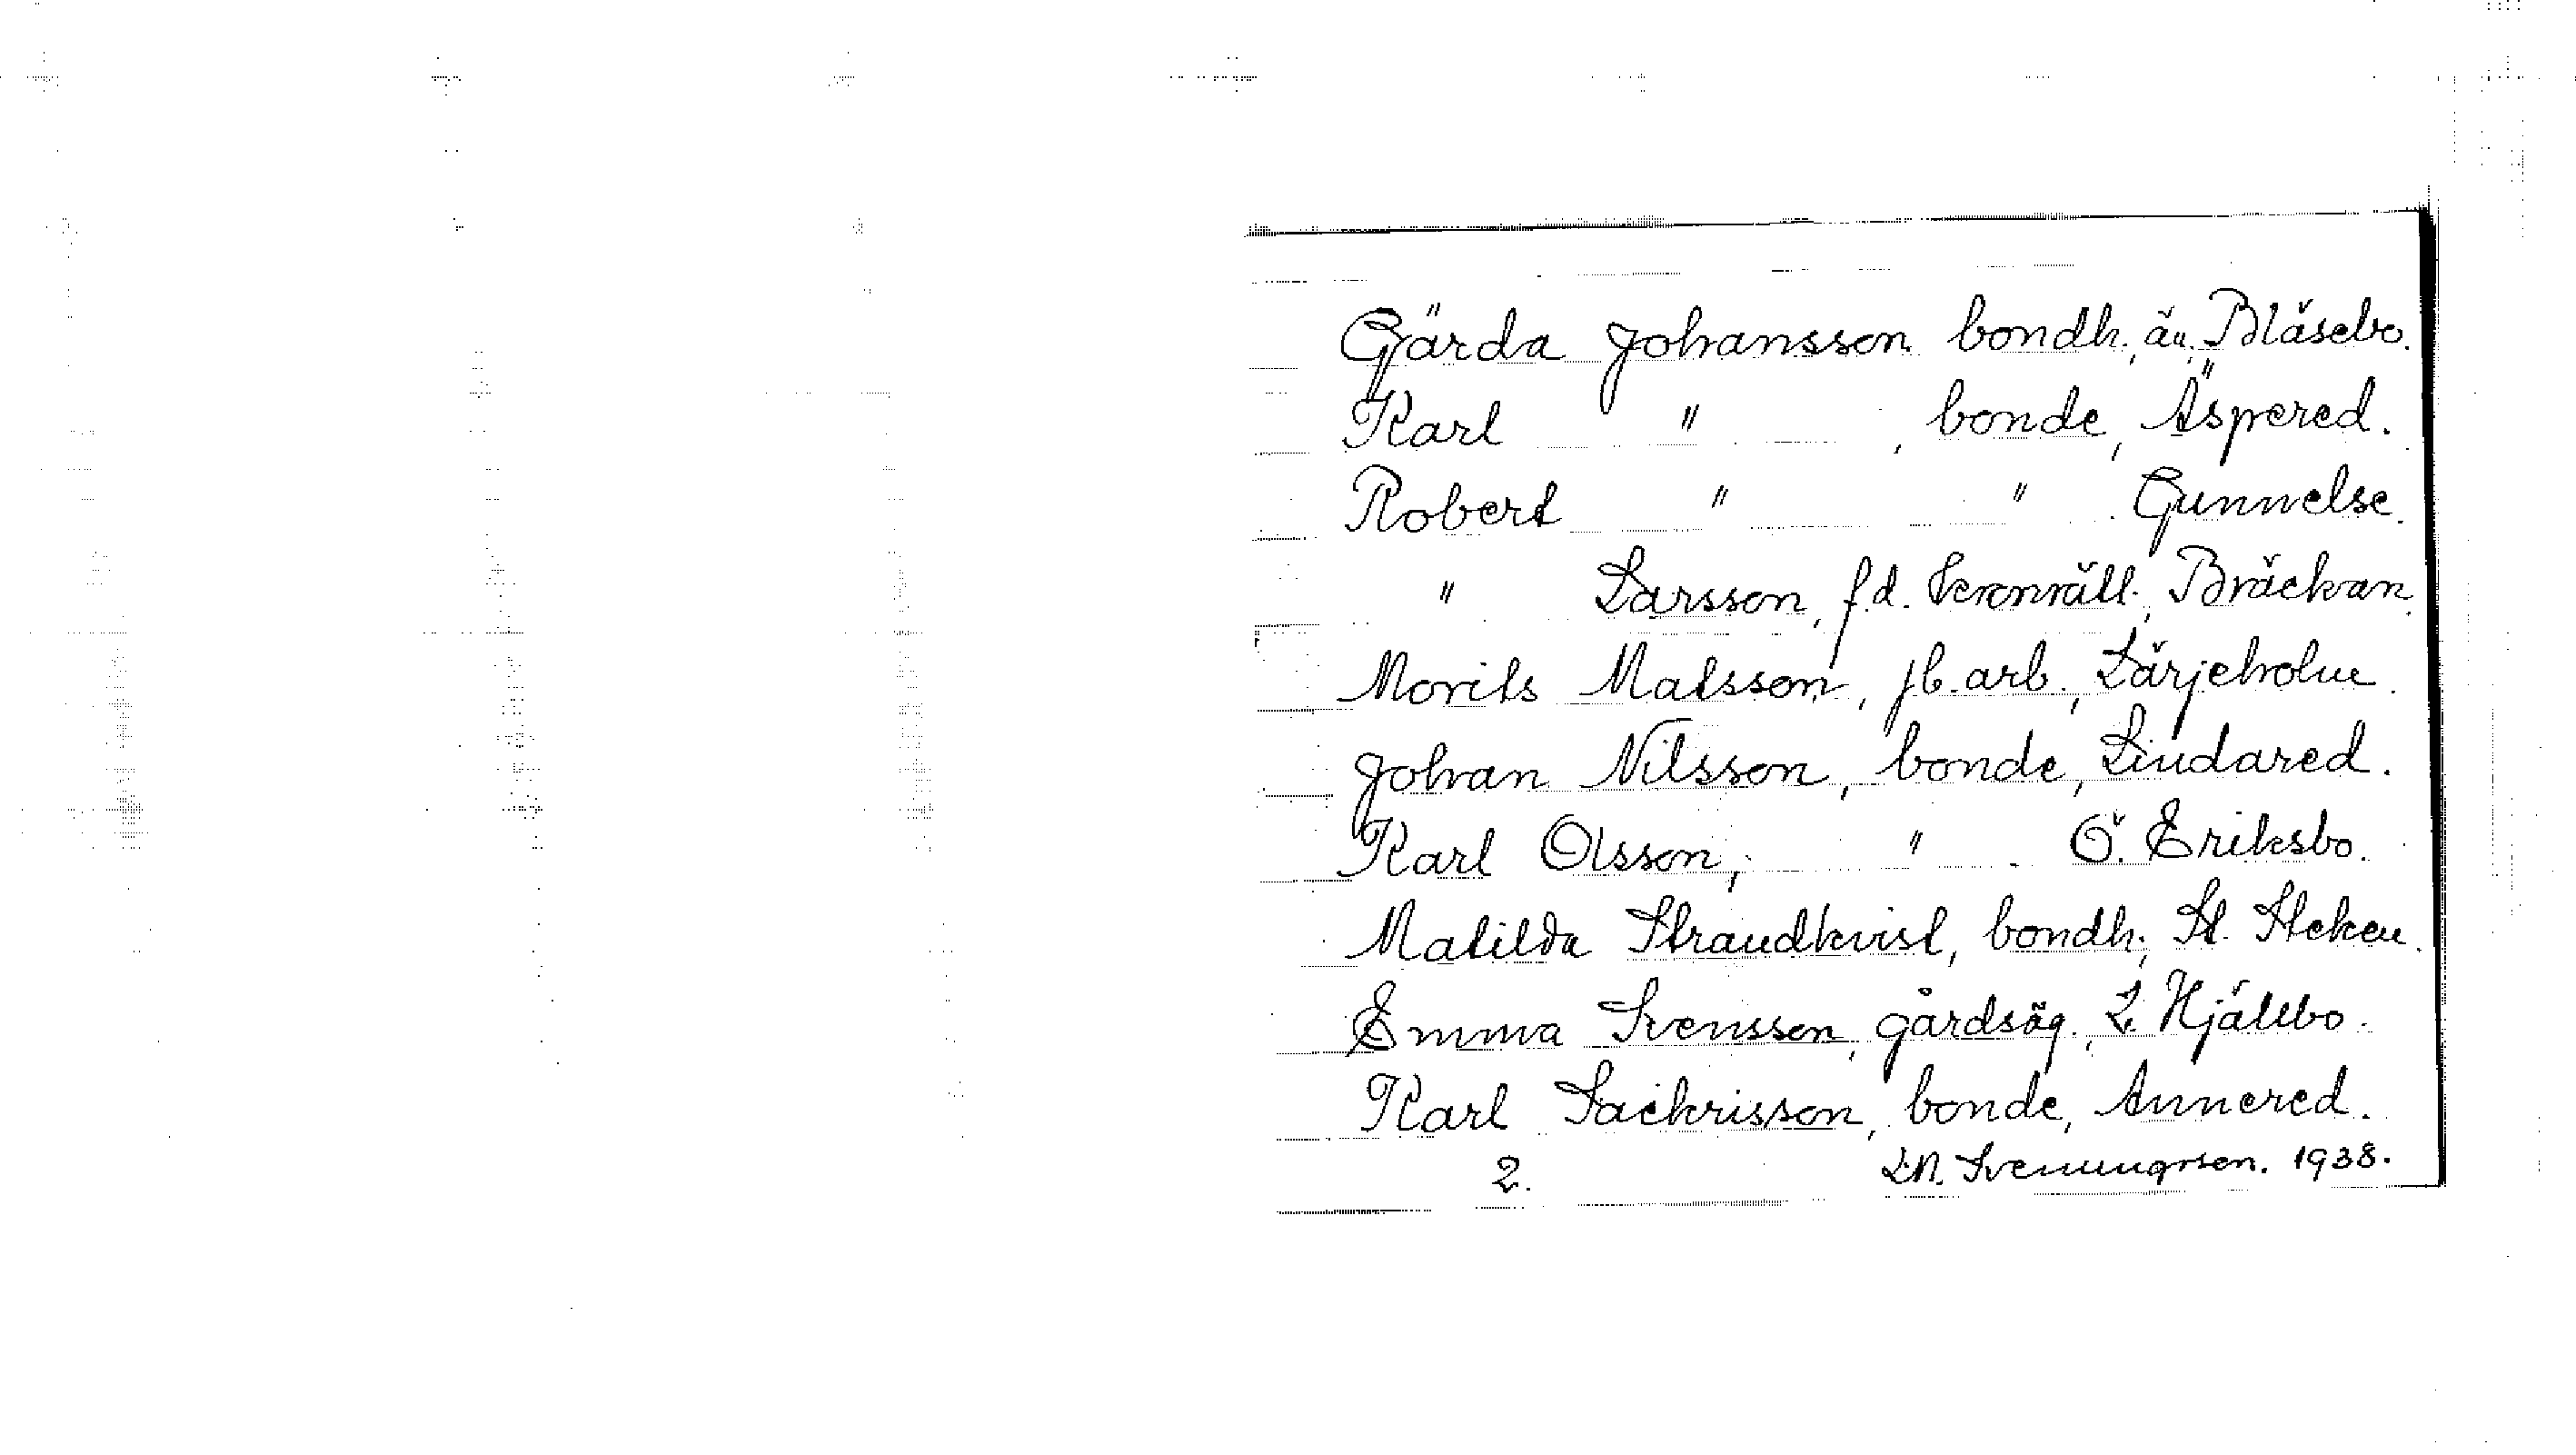 Gärda Johansson bondh., än. Blåsebo.
Karl " , bonde, Äspered.
Robert " " Gunnelse.
" Larsson, f.d. kronrätt., Bräckan.
Morits Matsson, jb. arb., Lärjeholm.
Johan Nilsson, bonde, Lindared.
Karl Olsson, " Ö. Eriksbo.
Matilda Strandkvist, bondh., St. Steken.
Emma Svensson, gårdsäg., L. Hjällbo.
Karl Sackrisson, bonde, Annered.
2. 1938.